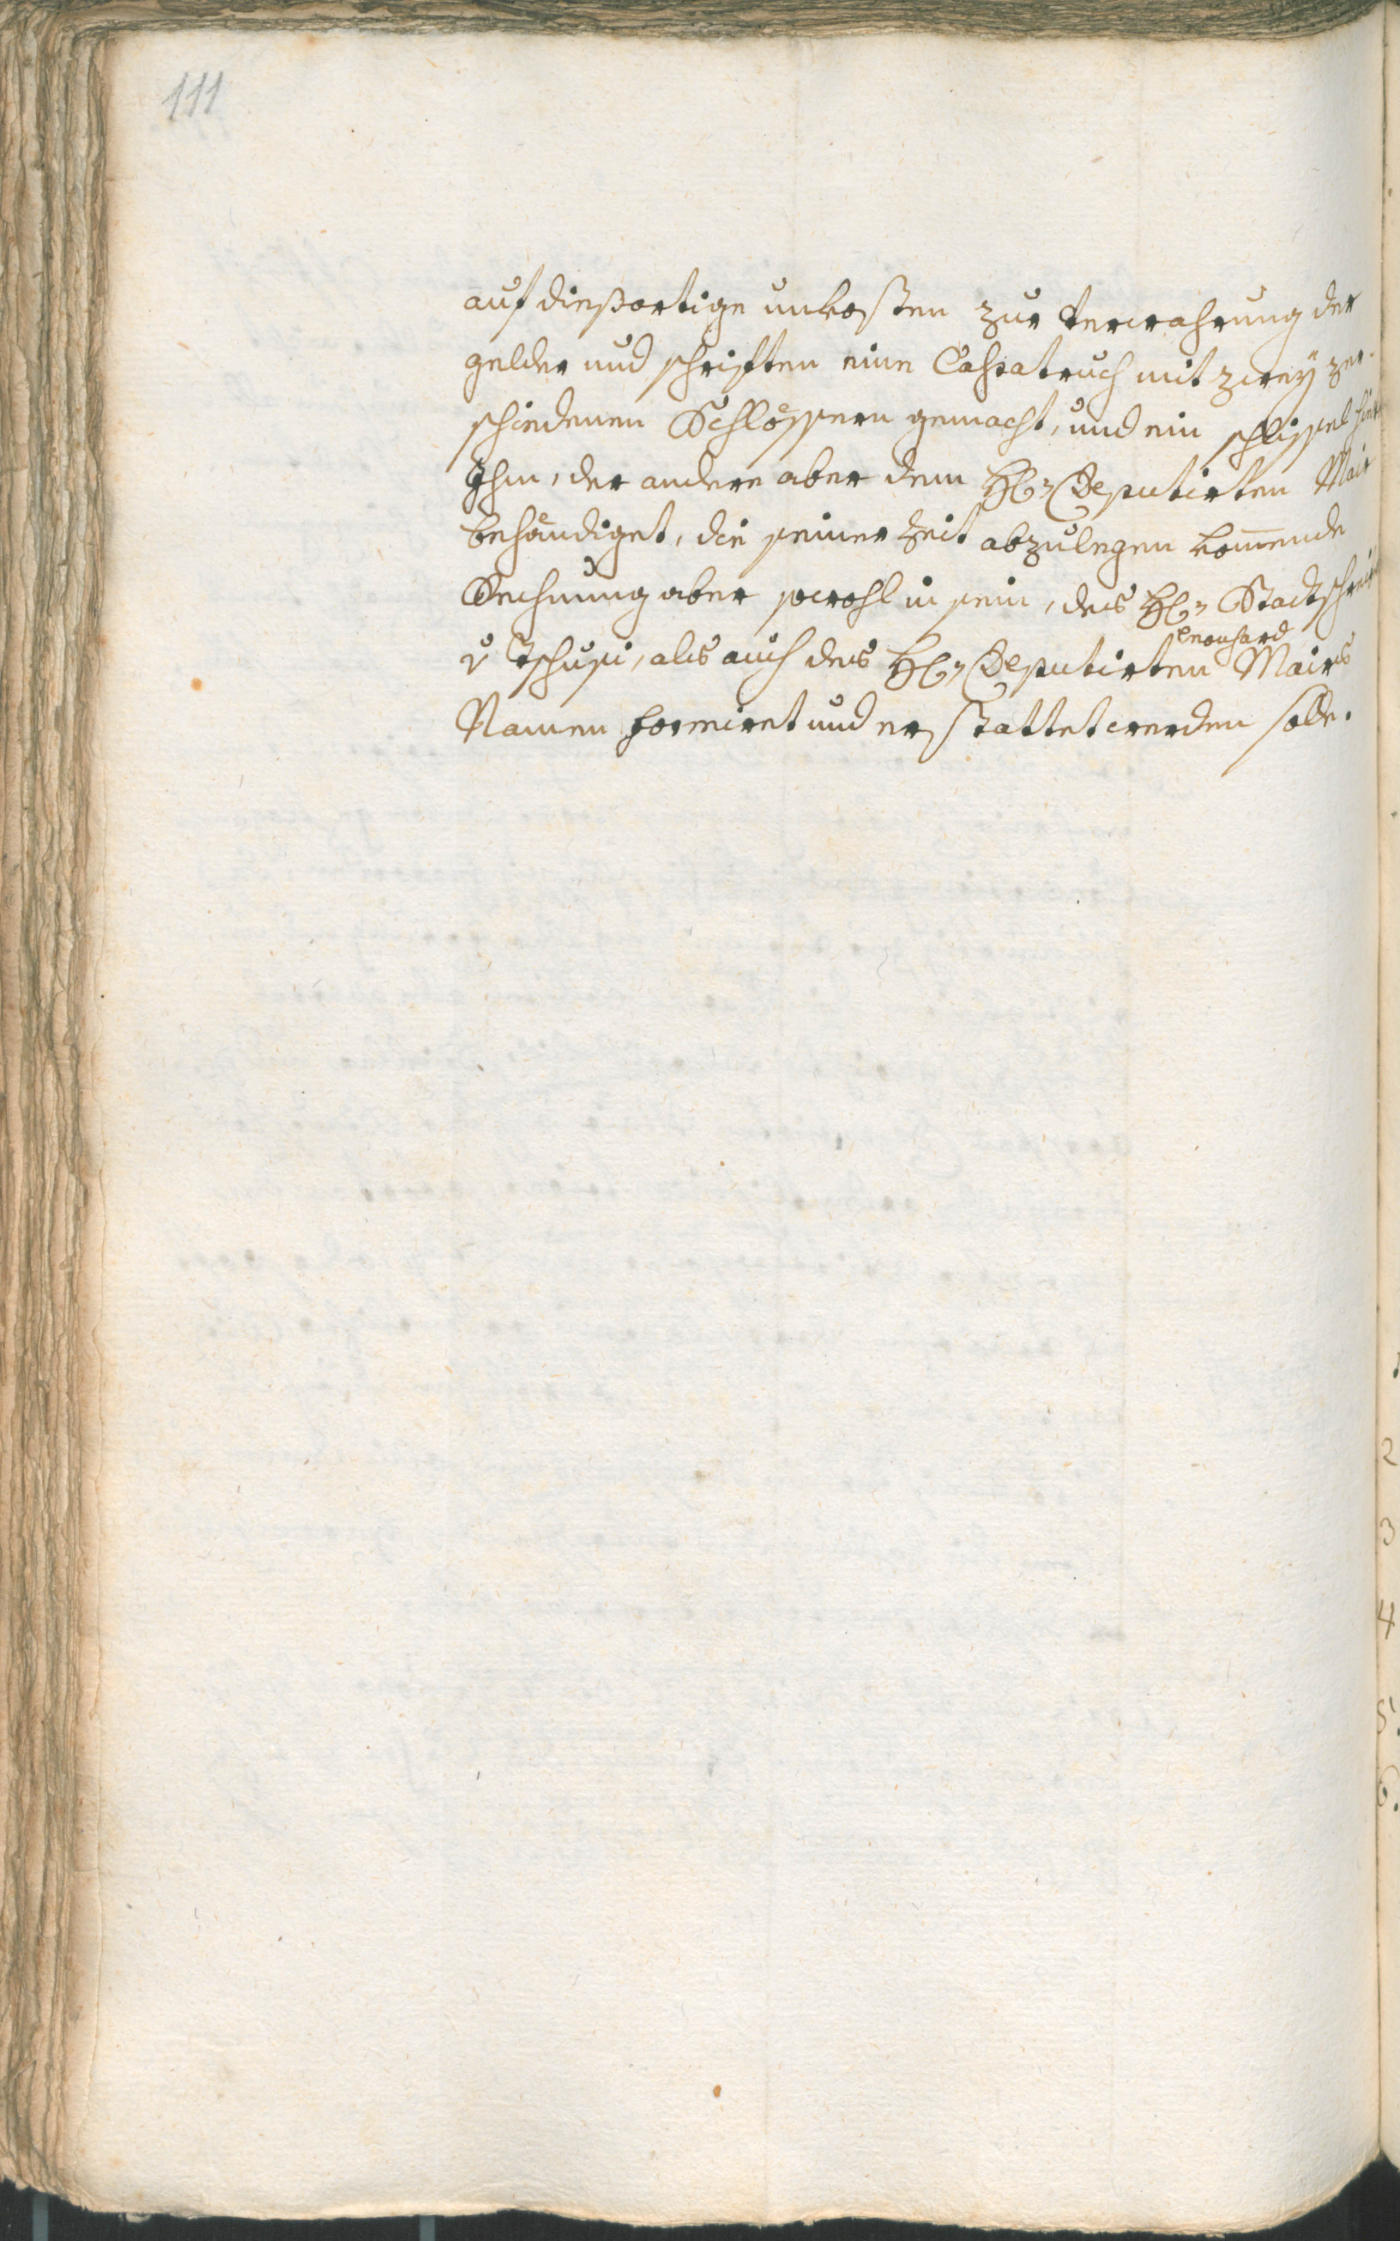 111
auf dießortige unkosten zur Verwahrung der
gelder und schrifften eine Cassatruch mit zweÿ ver-
schiedenen Schlössern gemacht, und ein schlissel hier
Ihm, der andere aber dem H: Deputirten Mair
behändiget, die seiner Zeit abzulegen kom̄ende
Rechnung aber sowohl in sein, des H: Stadtschreib
v Tschusi, als auch des H: Deputirten Leonhard Mairs
Namen formiret und erstattet werden solle.
2
3
4
5.
6.